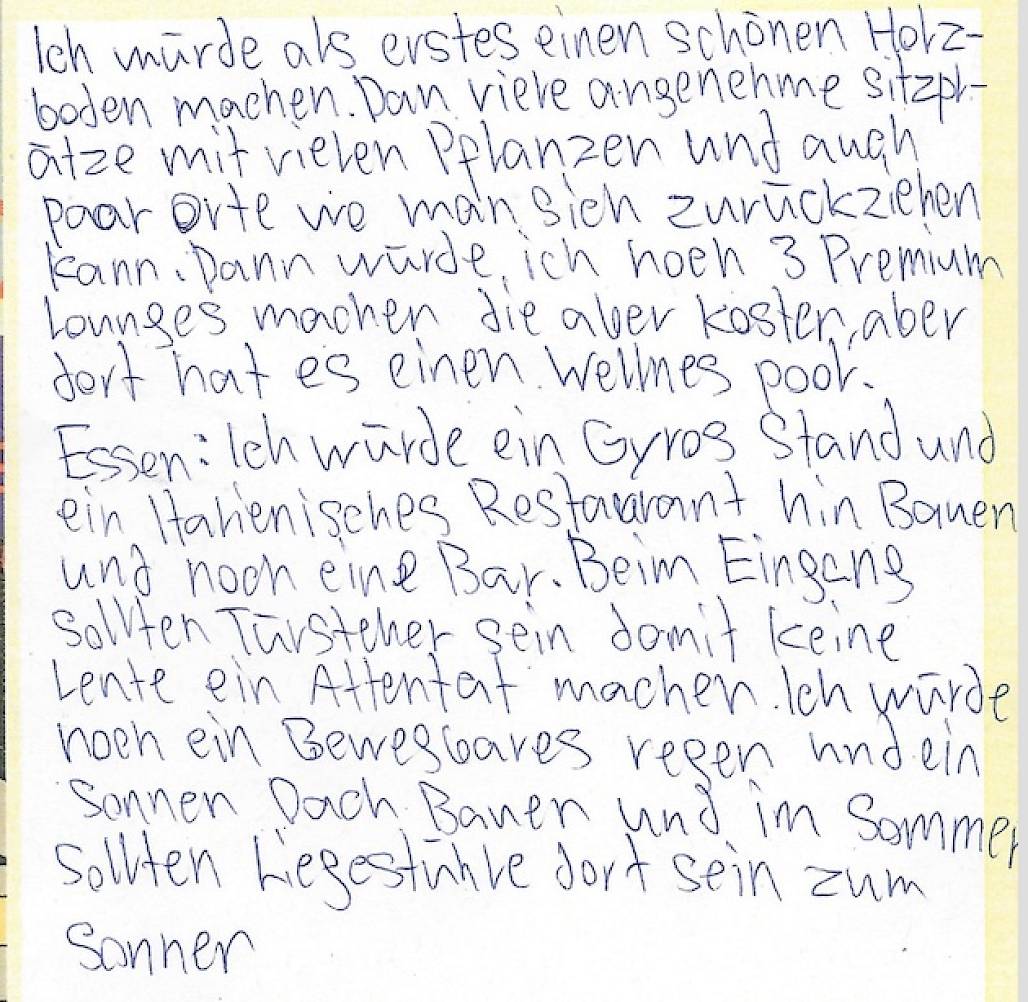 Ich würde als erstes einen schönen Holz-
boden machen. Dan viele angenehme sitzpl-
ätze mit vielen Pflanzen und auch
paar Orte wo man sich zurückziehen
kann. Dann würde ich noch 3 Premium
Lounges machen die aber kosten, aber
dort hat es einen Wellnes pool.
Essen: Ich würde ein Gyros Stand und
ein Italienisches Restaurant hin Bauen
und noch eine Bar. Beim Eingang
Sollten Türsteher sein damit keine
Leute ein Attentat machen. Ich würde
noch ein Bewegbares regen und ein
Sonnen Dach Bauen und im Sommer
Sollten Liegestühle dort sein zum
Sonnen